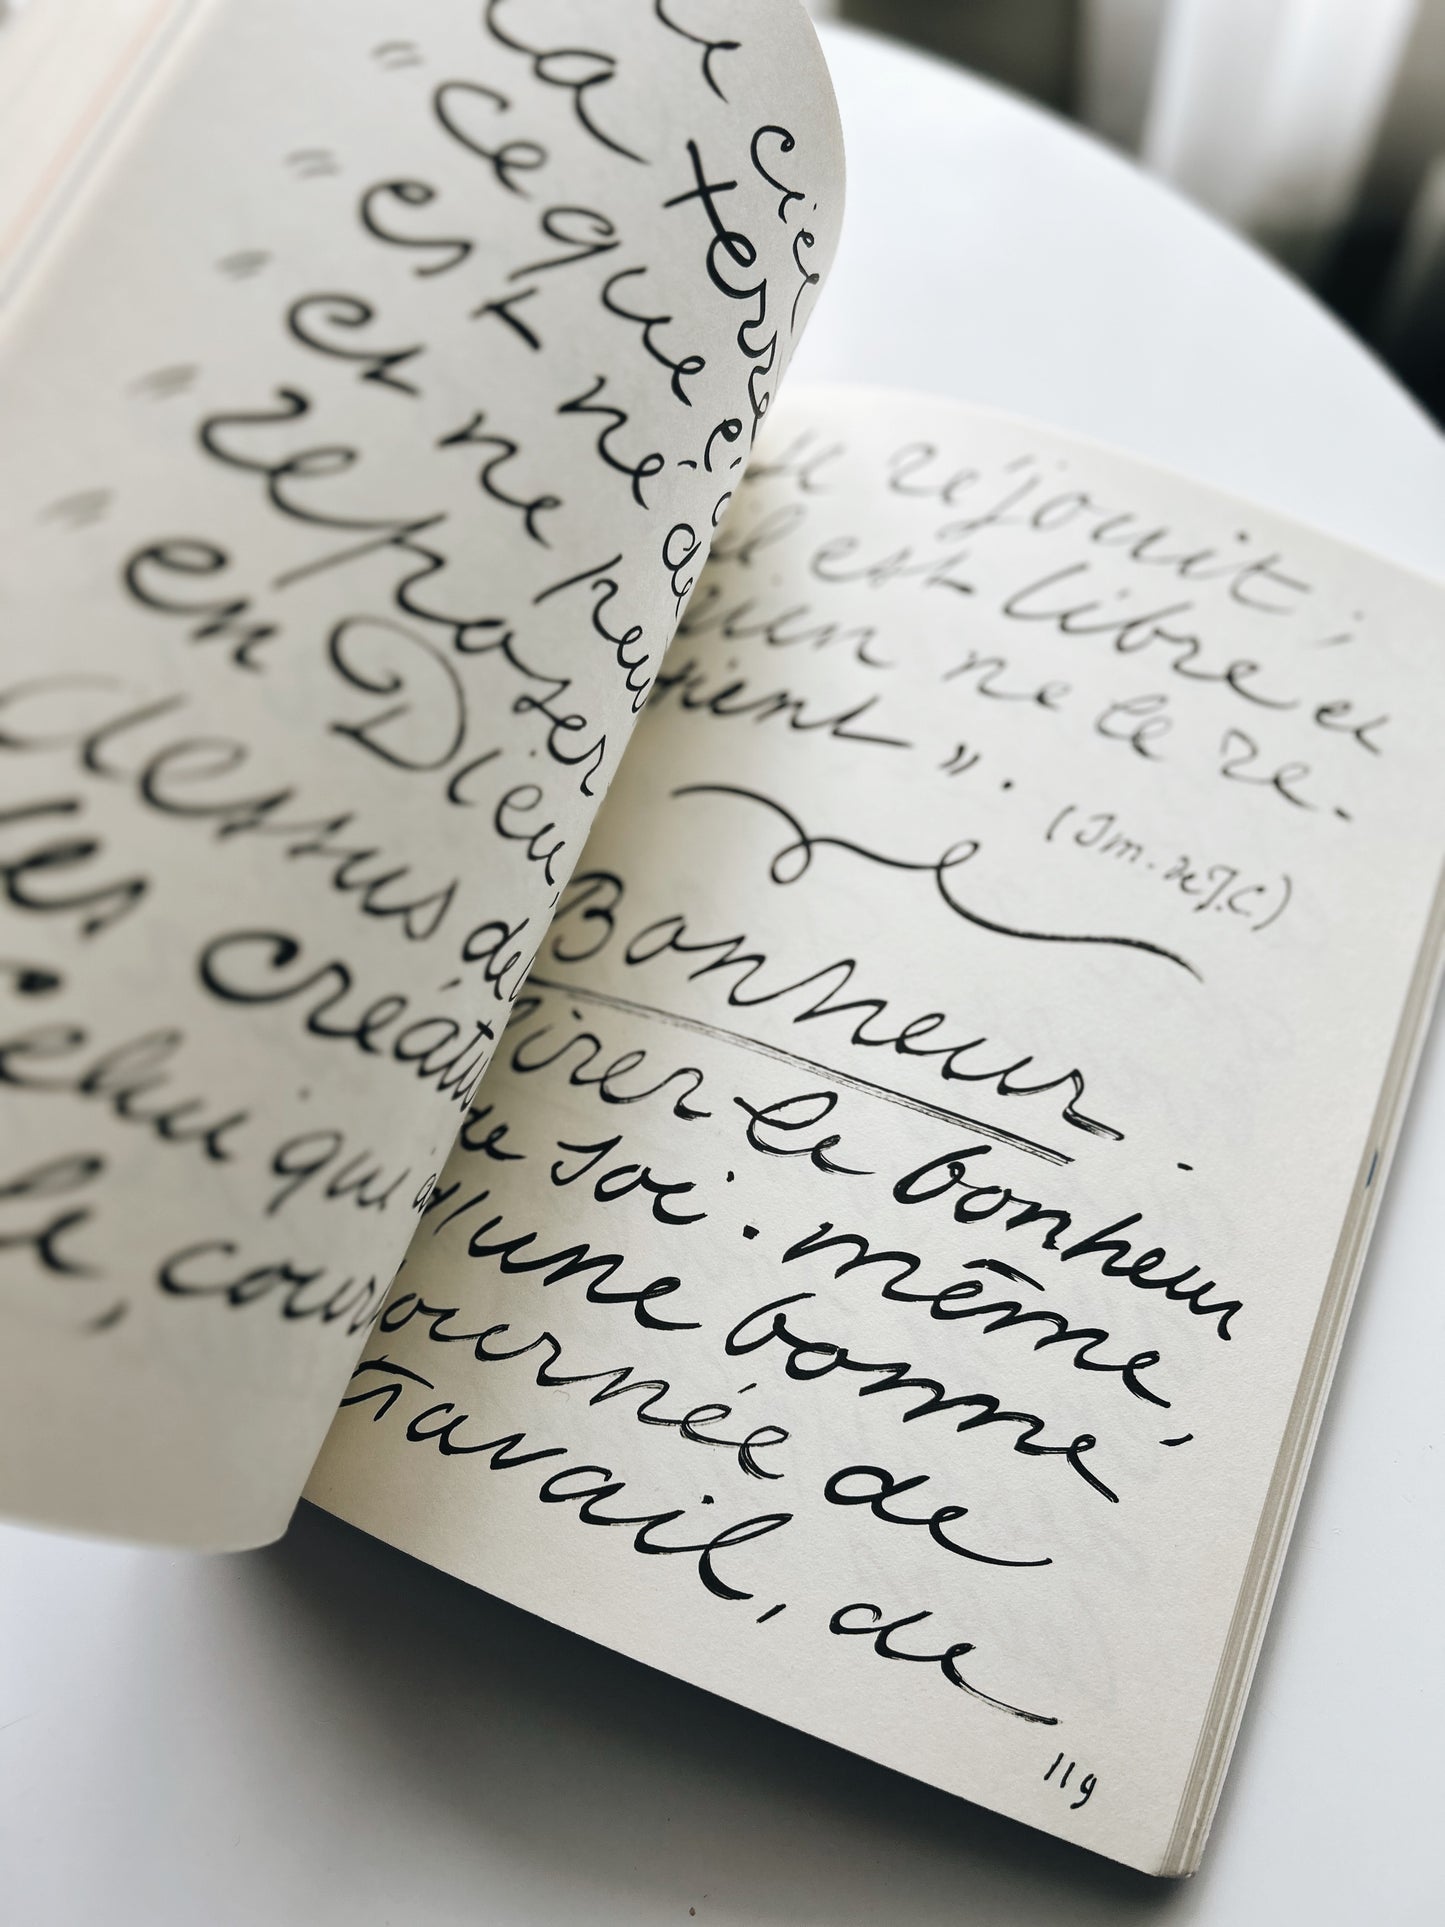 ciel
la terre
" ce que
" est né de
" et ne peu
" reposer
" en Dieu,
dessus de
les créatu
Celui qui a
le, cour
réjouit ;
il est libre et
rien ne le re-
tient ».
(Im. de J.C.)
Bonheur
irer le bonheur
soi-même,
d'une bonne
ournée de
travail, de
119